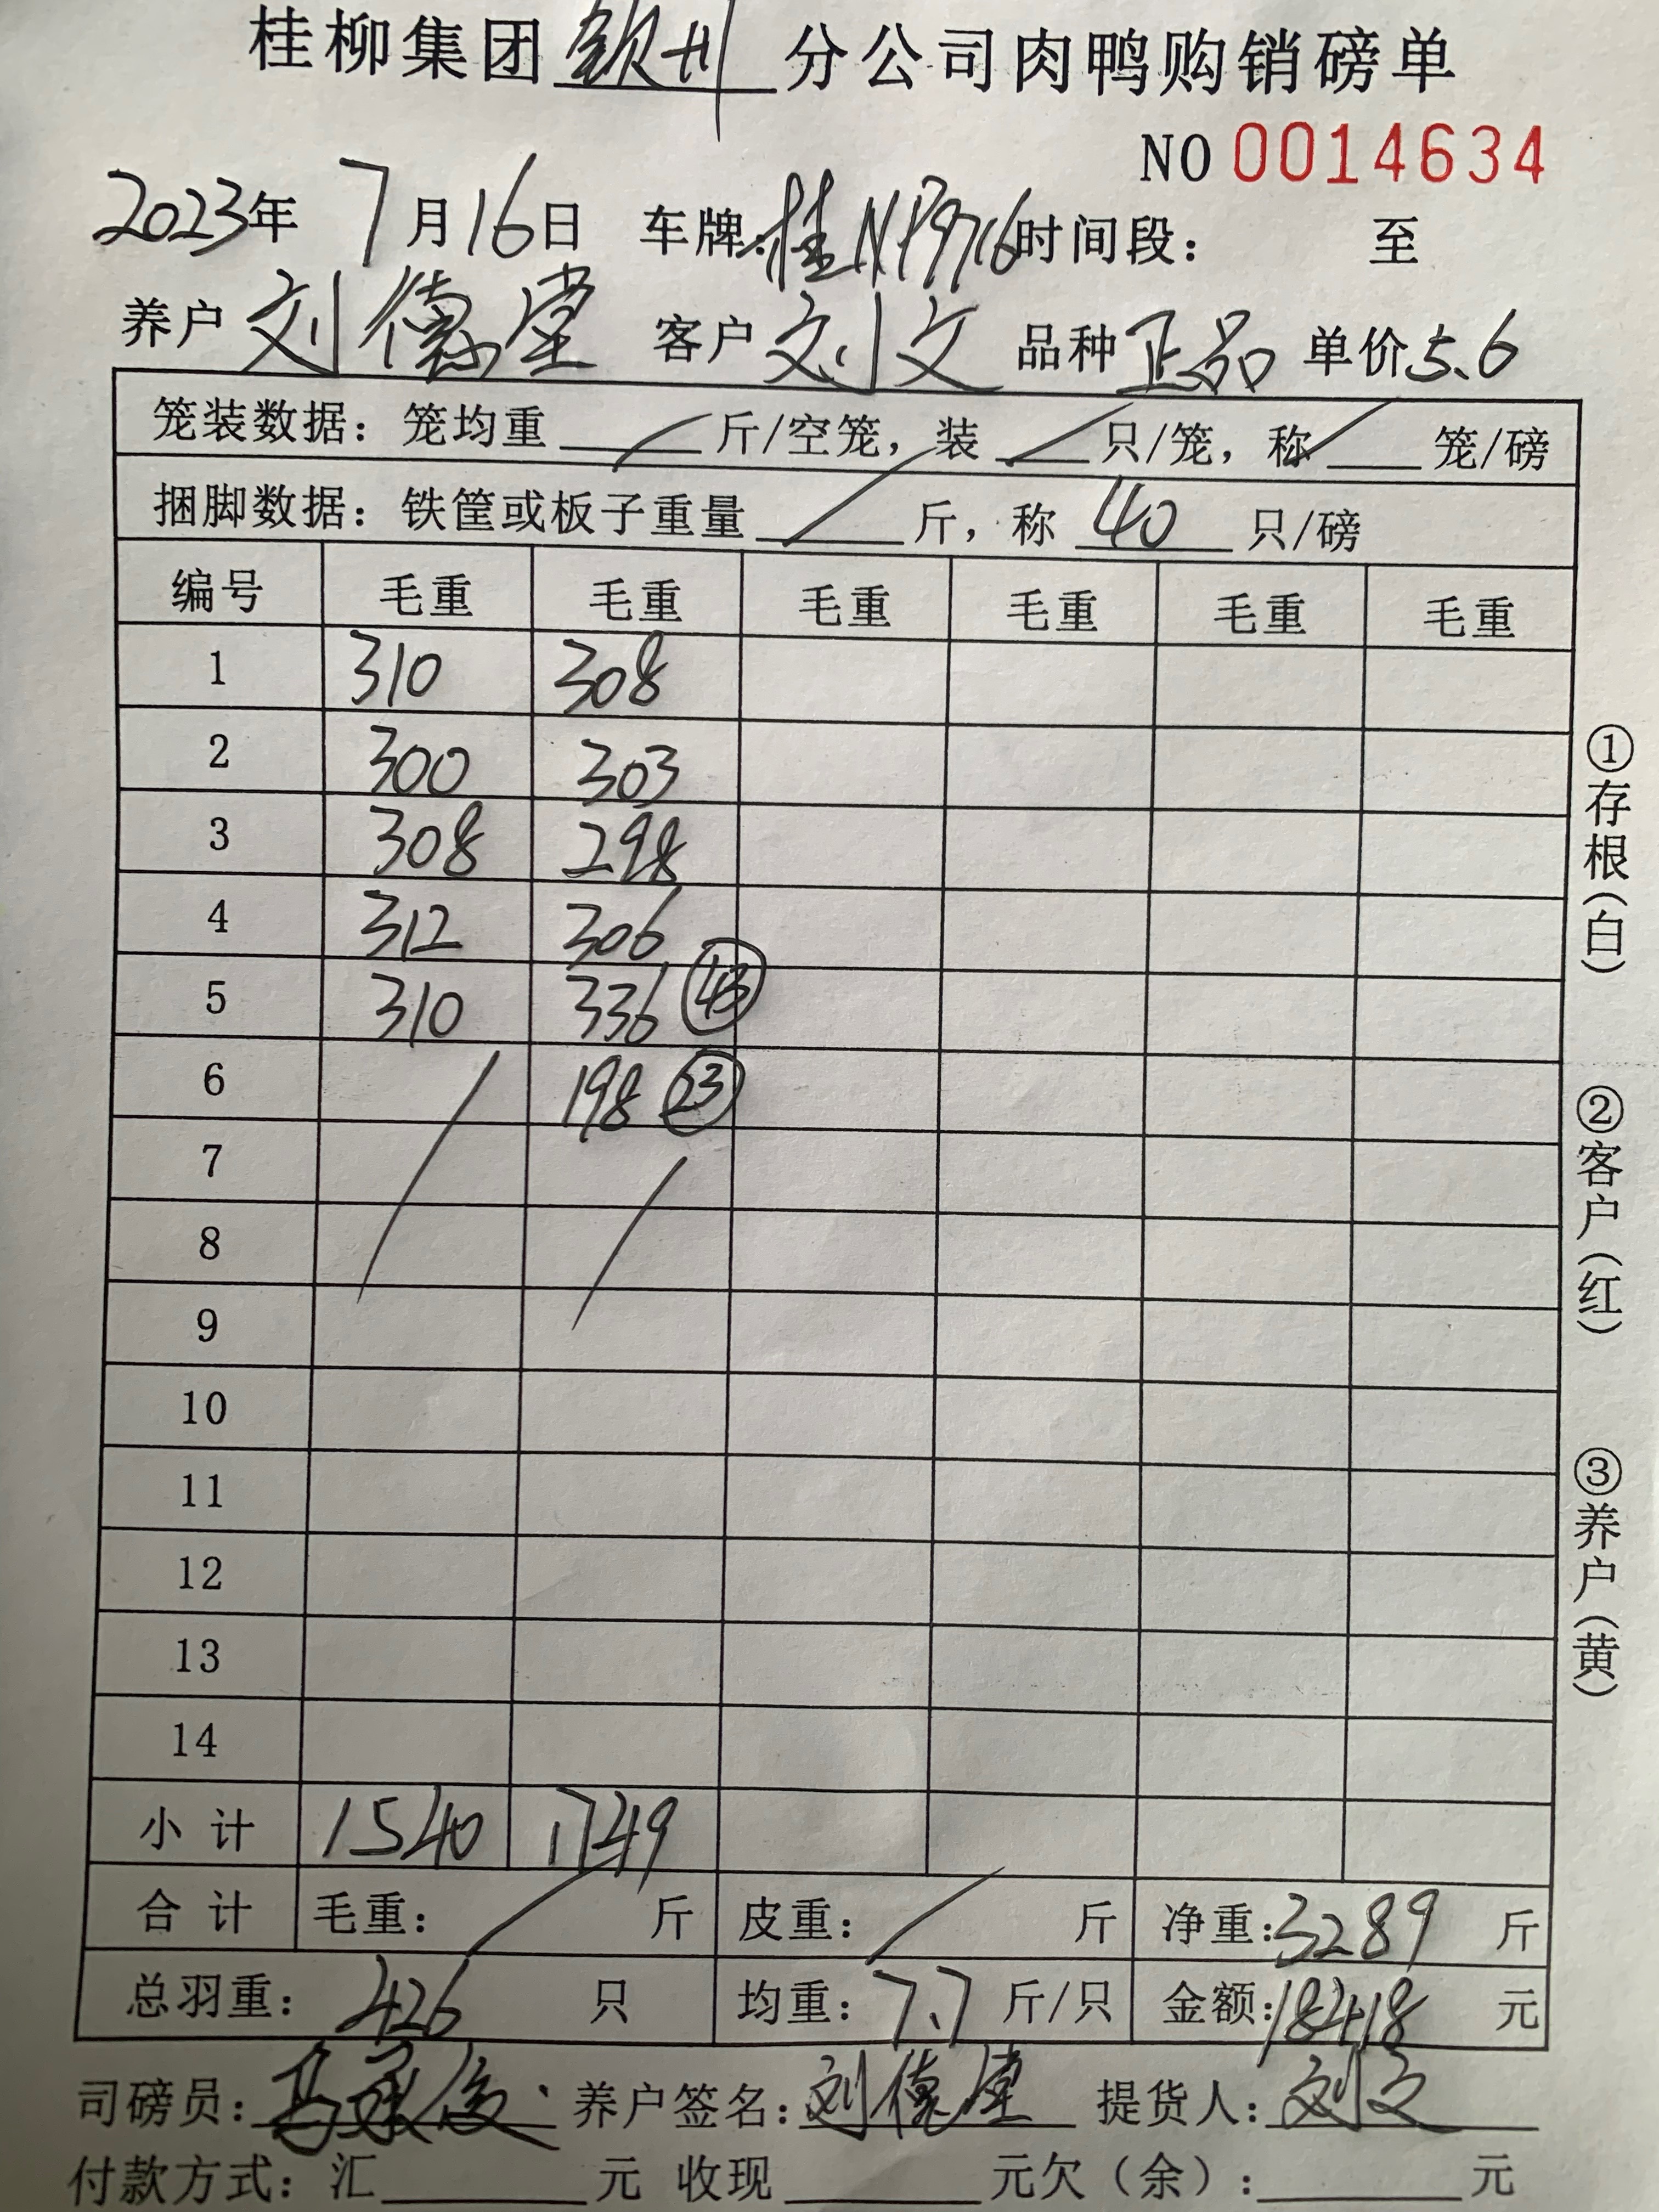 桂柳集团钦州分公司肉鸭购销磅单
NO 0014634
2023年 7月16日 车牌:桂NP9716 时间段: 至
养户 刘德堂 客户 刘文 品种 正品 单价 5.6
笼装数据: 笼均重 / 斤/空笼, 装 / 只/笼, 称 / 笼/磅
捆脚数据: 铁筐或板子重量 / 斤, 称 40 只/磅
编号 毛重 毛重 毛重 毛重 毛重 毛重
1 310 308
2 300 303
3 308 298
4 312 306
5 310 336 43
6 198 23
7
8
9
10
11
12
13
14
小计 1540 1749
合计 毛重: / 斤 皮重: / 斤 净重: 3289 斤
总羽重: 426 只 均重: 7.7 斤/只 金额: 18418 元
司磅员: 养户签名: 刘德堂 提货人: 刘文
付款方式: 汇 元 收现 元欠(余): 元
①存根(白)
②客户(红)
③养户(黄)